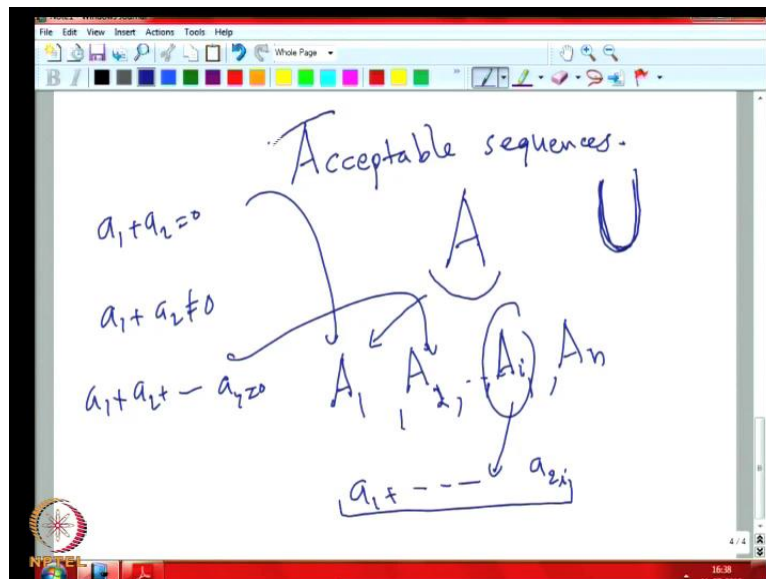 Note1 - Windows Journal
File Edit View Insert Actions Tools Help
Whole Page
B I
Acceptable sequences.
a₁ + a₂ = 0
A
U
a₁ + a₂ ≠ 0
a₁ + a₂ + - a₄ = 0
A₁, A₂, .. Aᵢ, Aₙ
a₁ + - - - a₂ᵢ
4 / 4
NPTEL
16:38